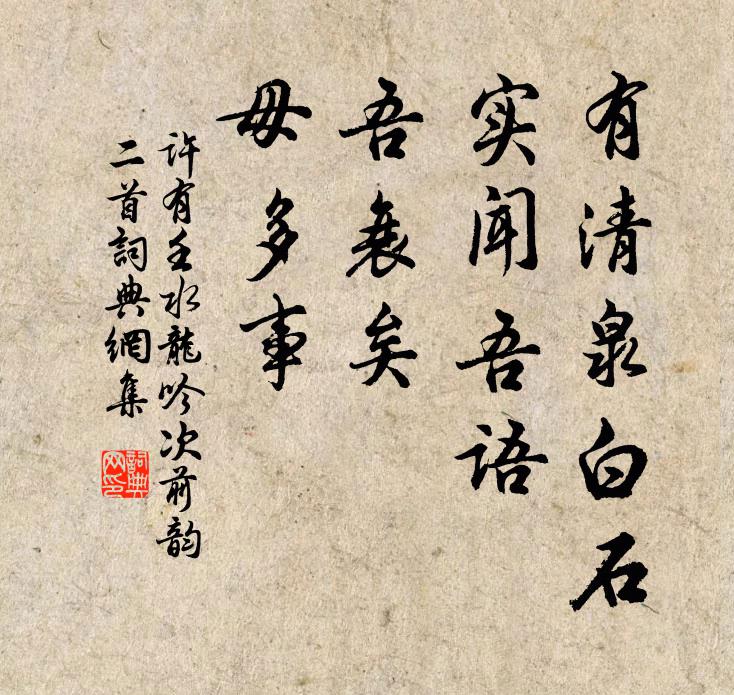 有清泉白石
实闻吾语
吾衰矣
毋多事
许有壬水龍吟次前韵
二首詞典網集
詞典
网印